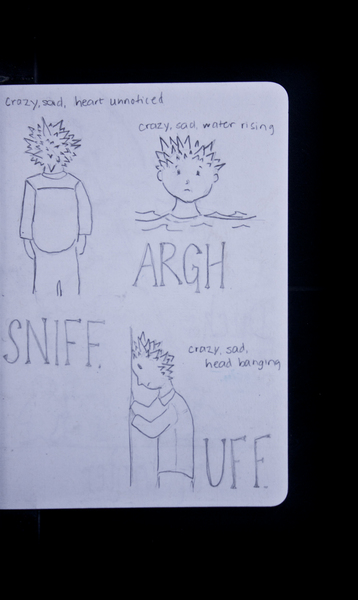 crazy, sad, heart unnoticed
crazy, sad, water rising
ARGH
SNIFF.
crazy, sad,
head banging
UFF.